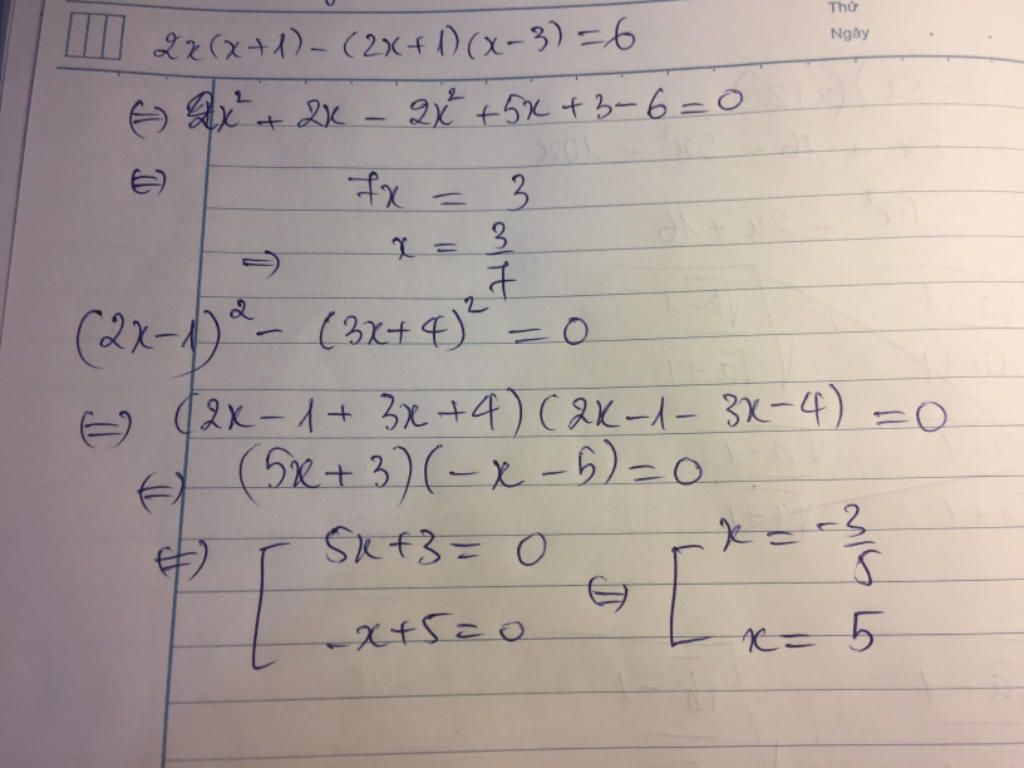 Thứ
Ngày
2x(x+1) - (2x+1)(x-3) = 6
⇔ 2x² + 2x - 2x² + 5x + 3 - 6 = 0
⇔ 7x = 3
⇒ x = 3/7
(2x-1)² - (3x+4)² = 0
⇔ (2x-1+3x+4)(2x-1-3x-4) = 0
⇔ (5x+3)(-x-5) = 0
⇔ [ 5x+3 = 0 ⇔ [ x = -3/5
-x+5 = 0 x = 5